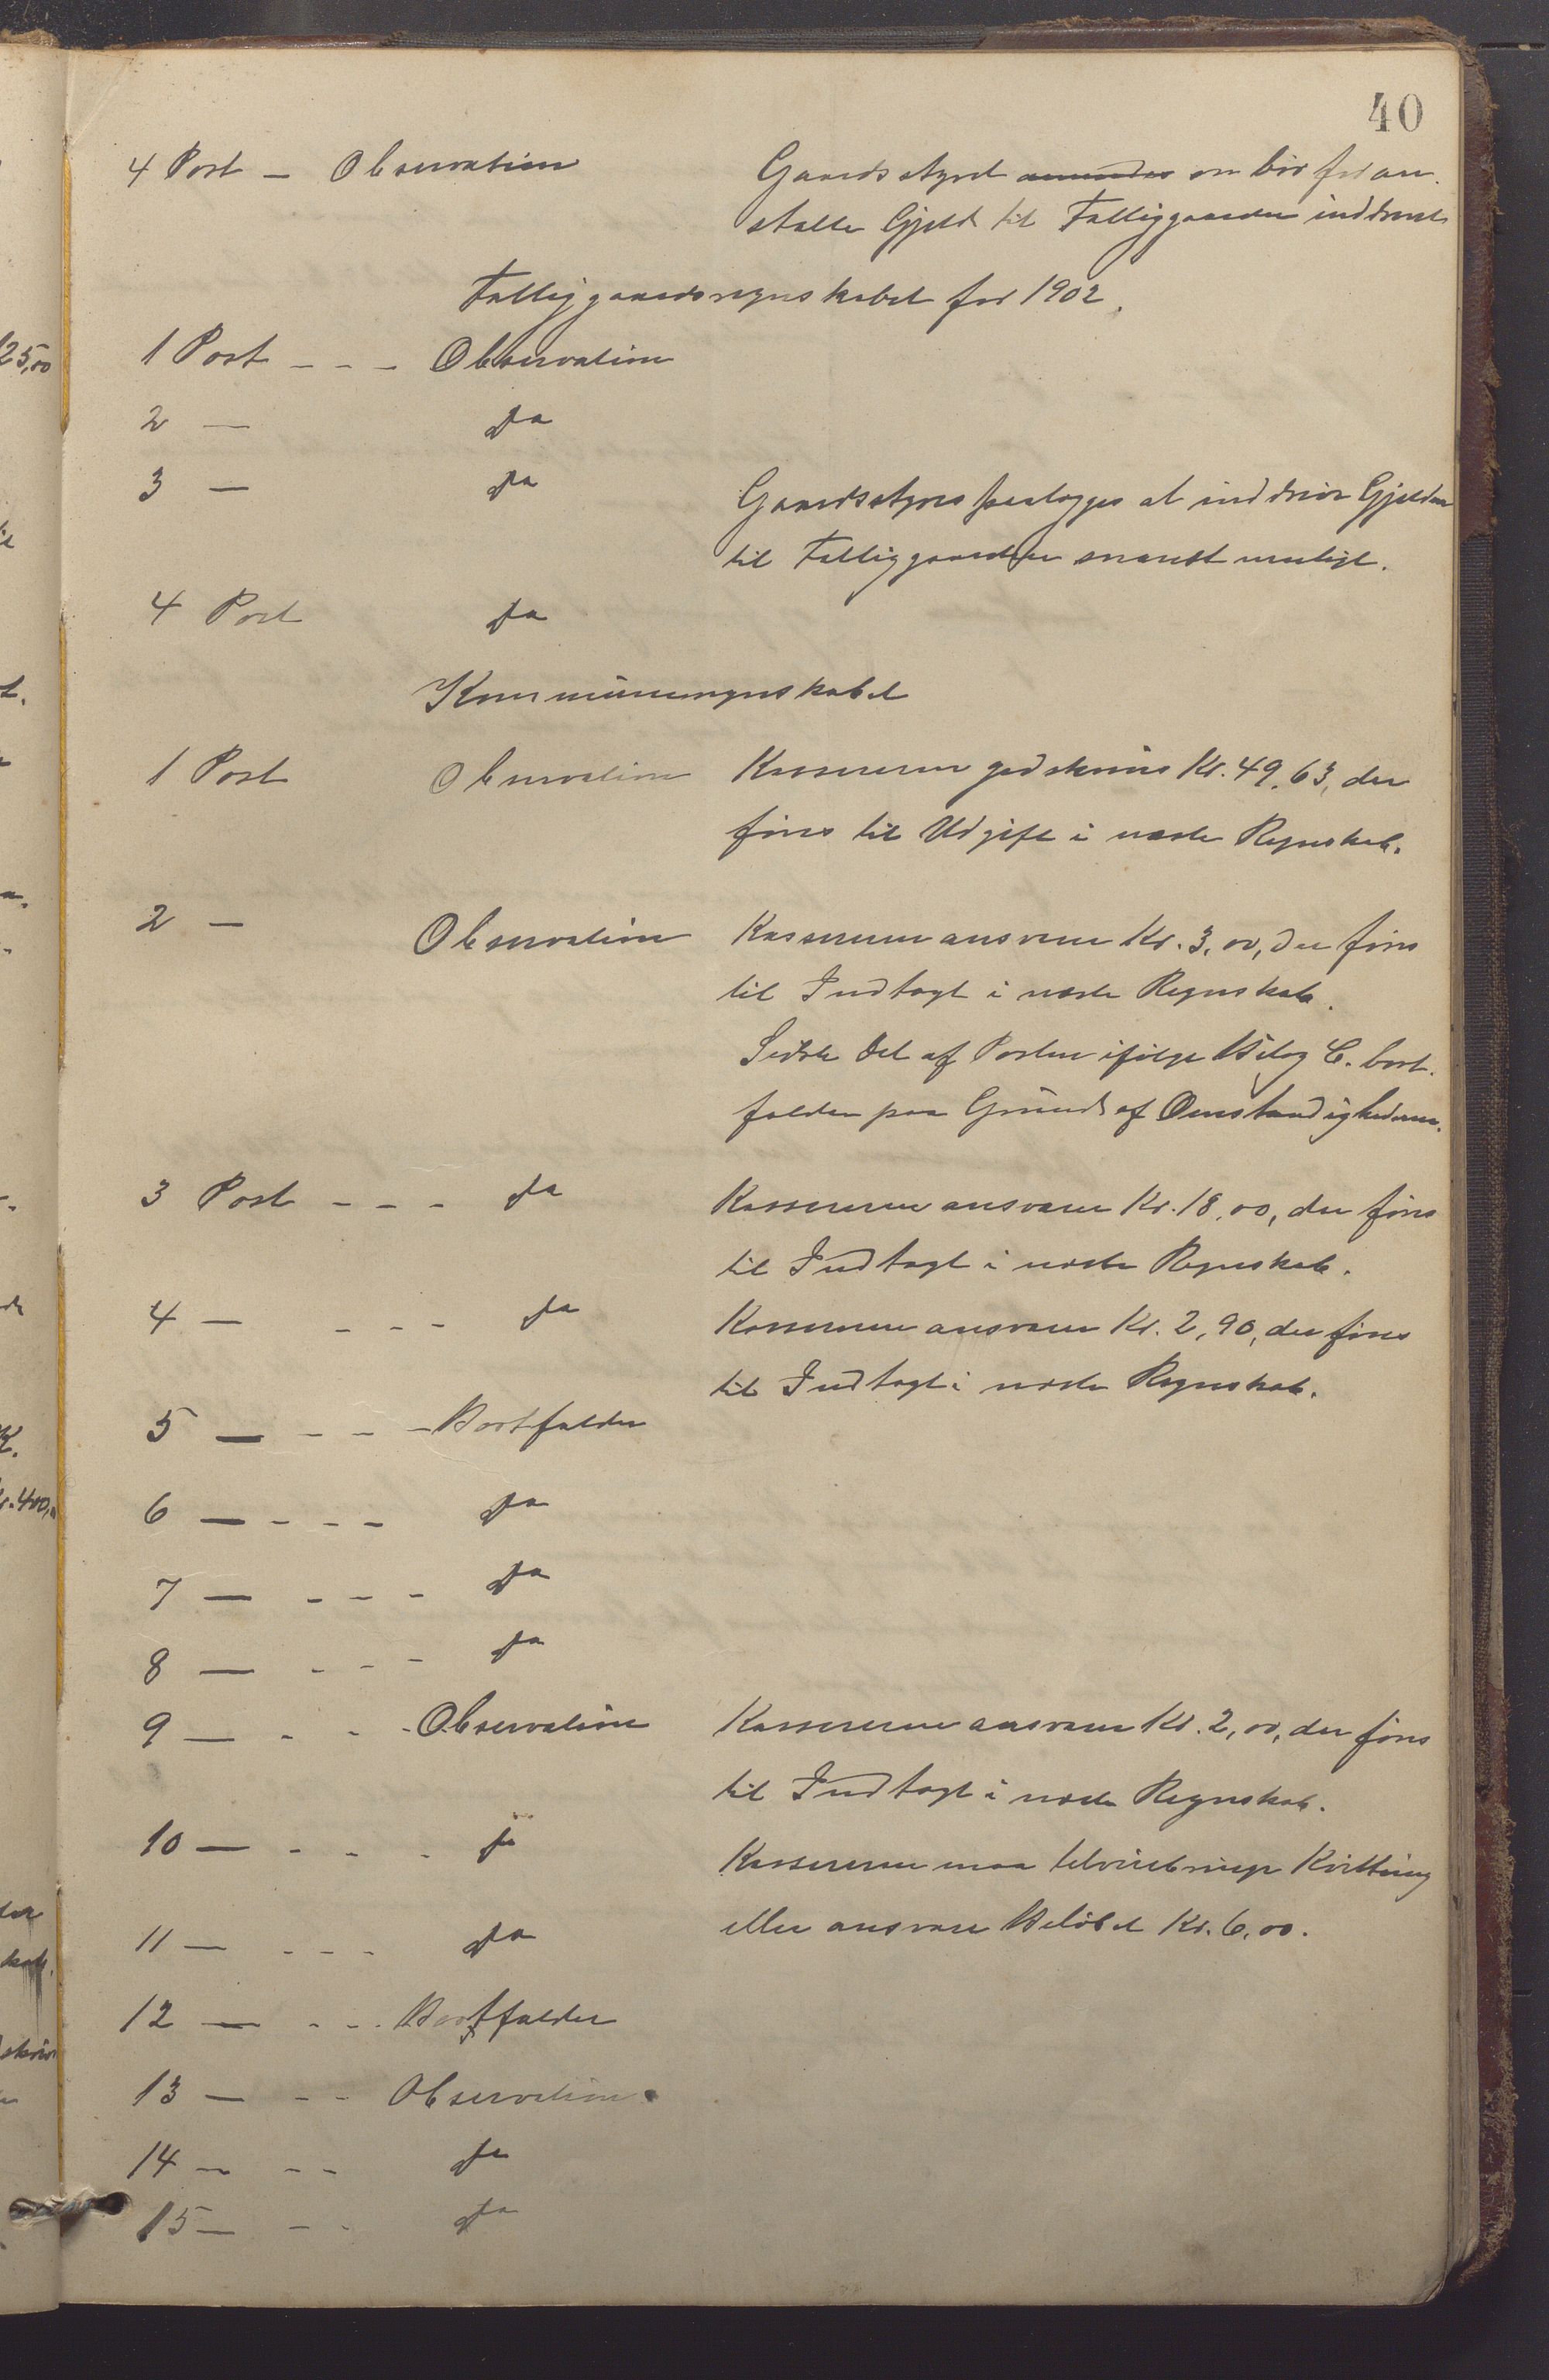 40
4 Post – Observation Gaardsstyret anmodes om bör foran-
stalte Gjeld til Fattiggaarden inddrevet
Fattiggaardsregnskabet for 1902.
1 Post - - - Observation
2 — Ja
3 — Ja Gaardsstyret paalægges at inddrive Gjelden
til Fattiggaarden snarest muligt.
4 Post Ja
Kommuneregnskabet
1 Post Observation Kassereren godskrives Kr. 49.63, der
föres til Udgift i næste Regnskab.
2 — Observation Kassereren ansvarer Kr. 3,00, der föres
til Indtægt i næste Regnskab.
Sidste Del af Posten ifölge Bilag C. bort-
falder paa Grund af Omstændighederne.
3 Post - - - Ja Kassereren ansvarer Kr. 18,00, der föres
til Indtægt i næste Regnskab.
4 — - - - Ja Kassereren ansvarer Kr. 2,90, der föres
til Indtægt i næste Regnskab.
5 — - - - Bortfalder
6 — - - - Ja
7 — - - - Ja
8 — - - - Ja
9 — - - - Observation Kassereren ansvarer Kr. 2,00, der föres
til Indtægt i næste Regnskab.
10 — - - - Ja Kassereren maa tilveiebringe Kvittering
eller ansvare Belöbet Kr. 6,00.
11 — - - - Ja
12 — - - - Bortfalder
13 — - - Observation.
14 — - - Ja
15 — - - Ja